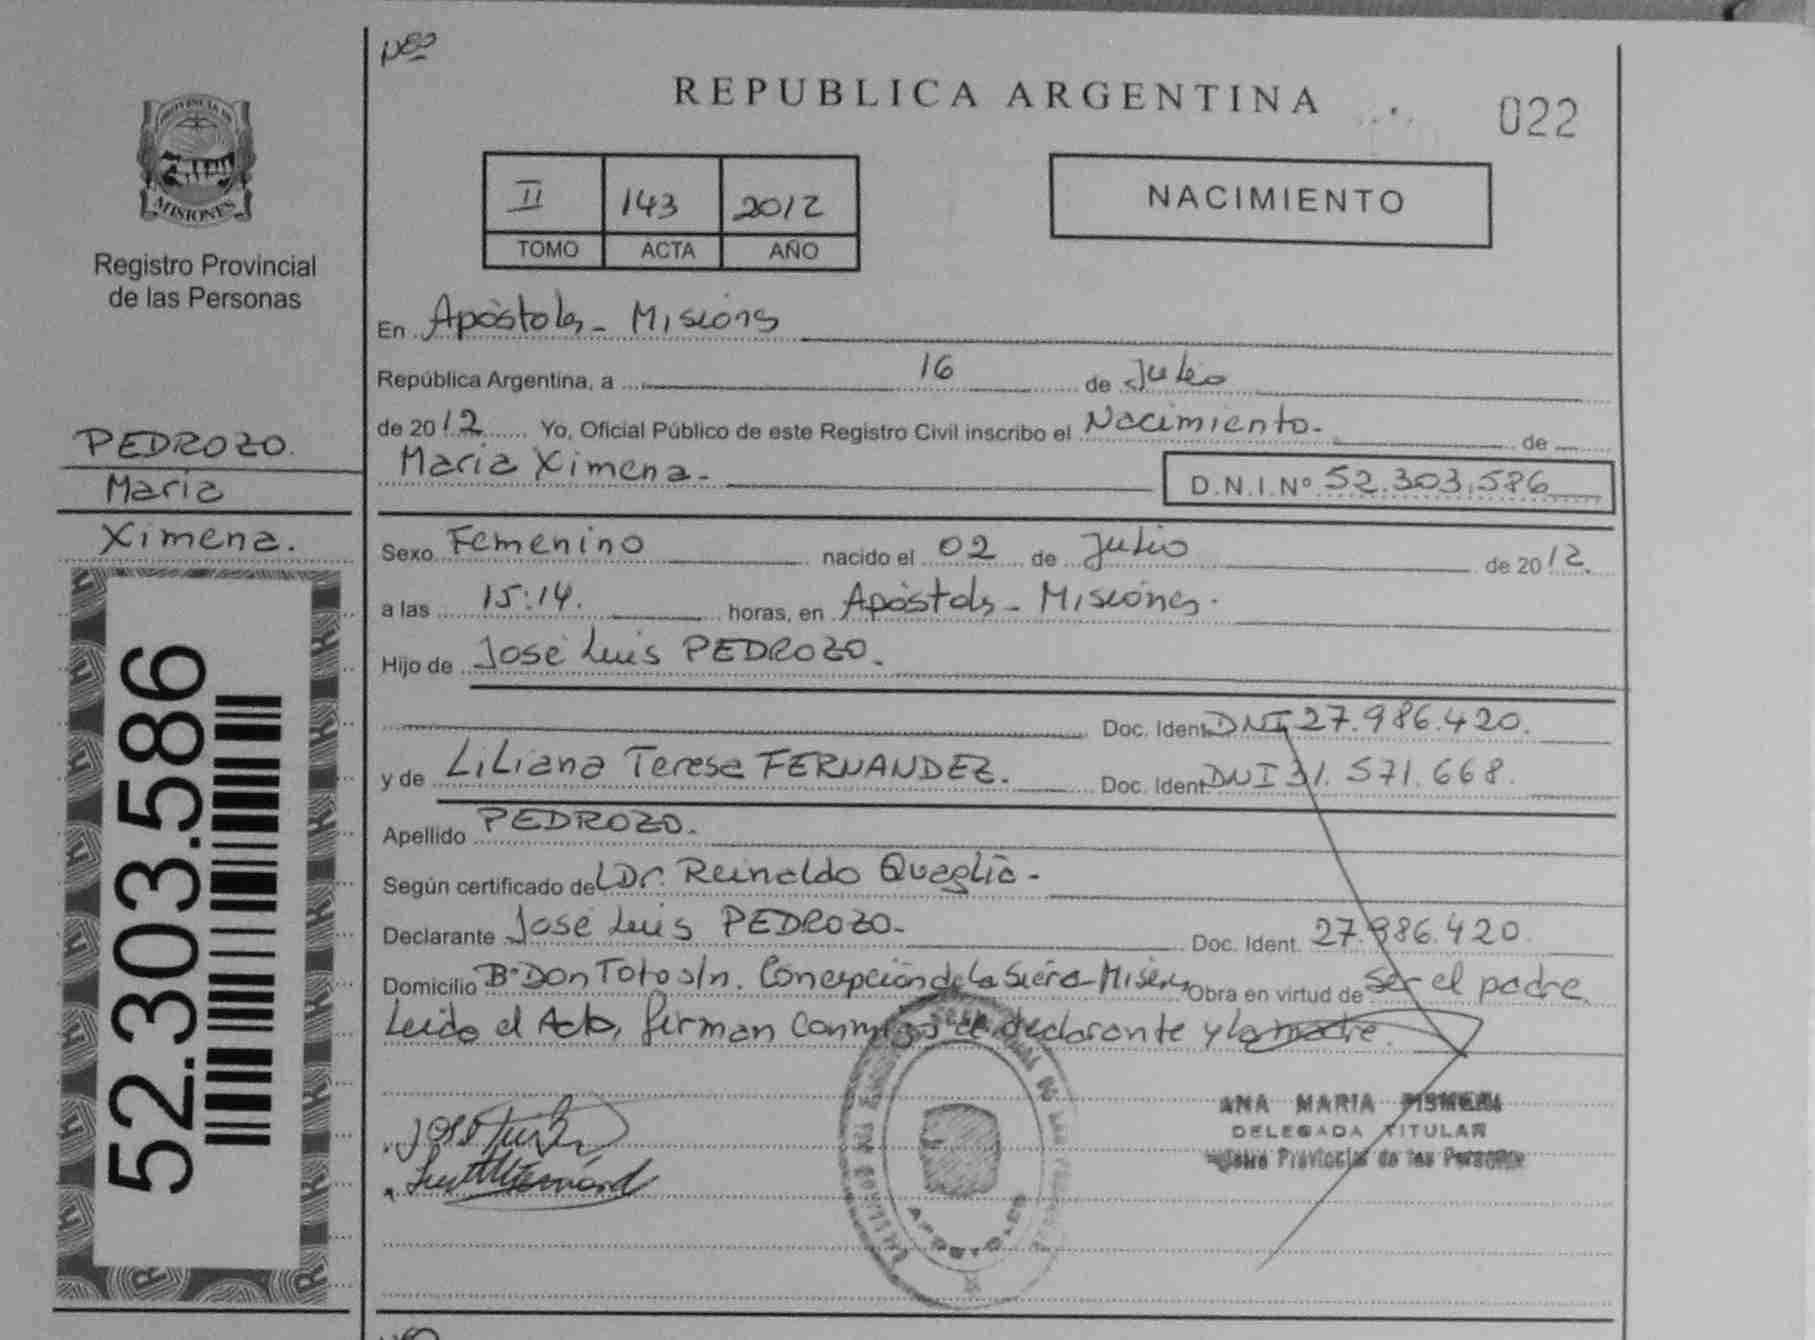 REPUBLICA ARGENTINA
022
II 143 2012
TOMO ACTA AÑO
NACIMIENTO
MISIONES
Registro Provincial
de las Personas
PEDROZO.
Maria
Ximena.
52.303.586
En Apóstoles - Misiones
República Argentina, a 16 de Julio
de 2012 Yo, Oficial Público de este Registro Civil inscribo el Nacimiento. de
Maria Ximena.- D.N.I.Nº 52.303.586
Sexo Femenino nacido el 02 de Julio de 2012.
a las 15:14. horas, en Apóstoles - Misiones.
Hijo de José Luis PEDROZO.
Doc. Ident. DNI 27.986.420.
y de Liliana Teresa FERNANDEZ. Doc. Ident. DNI 31.571.668.
Apellido PEDROZO.
Según certificado de Dr. Reinaldo Quaglia -
Declarante José Luis PEDROZO.- Doc. Ident. 27.986.420.
Domicilio Bº Don Toto s/n. Concepción de la Sierra - Obra en virtud de ser el padre.
Leida el Acta, firman conmigo el declarante y la madre.
ANA MARIA
DELEGADA TITULAR
Provincial de las Personas
APOSTOLES